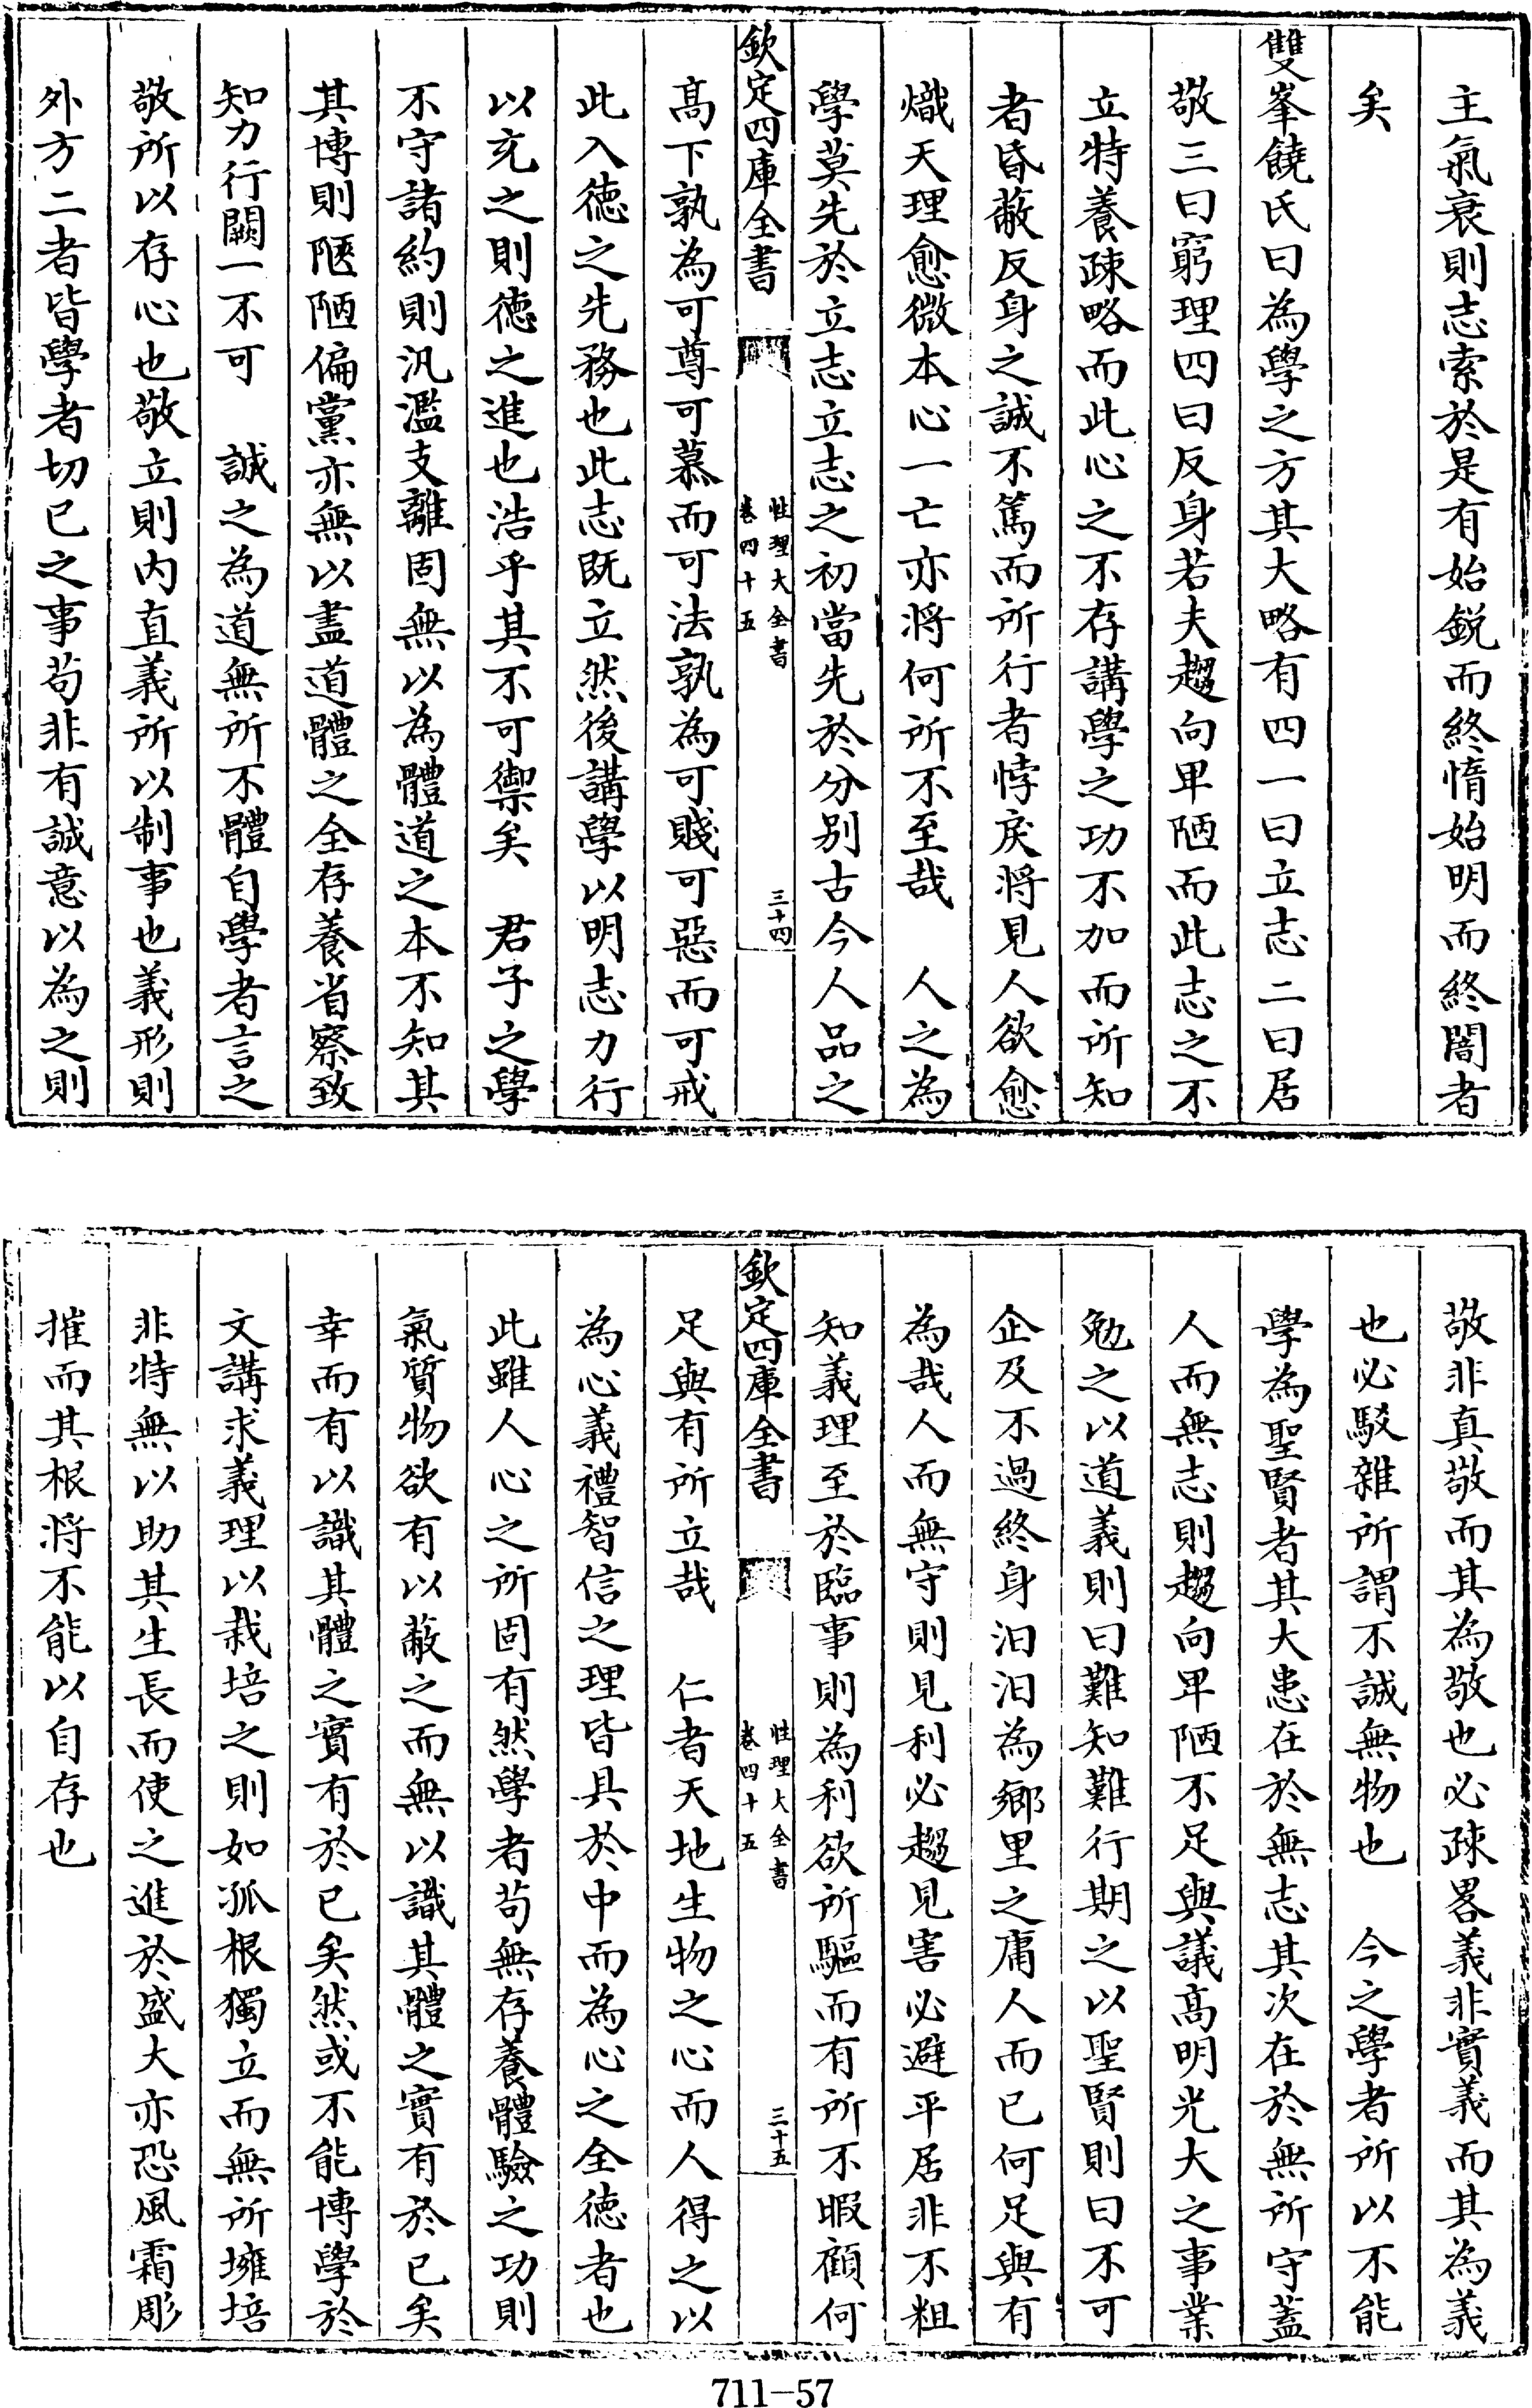 主氣衰則志索於是有始鋭而終惰始明而終闇者
矣
雙峯饒氏曰為學之方其大略有四一曰立志二曰居
敬三曰窮理四曰反身若夫趨向卑陋而此志之不
立特養疎略而此心之不存講學之功不加而所知
者昏蔽反身之誠不篤而所行者悖戾將見人欲愈
熾天理愈微本心一亡亦將何所不至哉　人之為
學莫先於立志立志之初當先於分别古今人品之
欽定四庫全書　性理大全書　卷四十五　三十四
高下孰為可尊可慕而可法孰為可賤可惡而可戒
此入德之先務也此志既立然後講學以明志力行
以充之則德之進也浩乎其不可禦矣　君子之學
不守諸約則汎濫支離固無以為體道之本不知其
其博則陋陋偏黨亦無以盡道體之全存養省察致
知力行闕一不可　誠之為道無所不體自學者言之
敬所以存心也敬立則内直義所以制事也義形則
外方二者皆學者切已之事苟非有誠意以為之則
敬非真敬而其為敬也必疎畧義非實義而其為義
也必駁雜所謂不誠無物也　今之學者所以不能
學為聖賢者其大患在於無志其次在於無所守蓋
人而無志則趨向卑陋不足與議高明光大之事業
勉之以道義則曰難知難行期之以聖賢則曰不可
企及不過終身汨汨為鄉里之庸人而已何足與有
為哉人而無守則見利必趨見害必避平居非不粗
知義理至於臨事則為利欲所驅而有所不暇顧何
欽定四庫全書　性理大全書　卷四十五　三十五
足與有所立哉　仁者天地生物之心而人得之以
為心義禮智信之理皆具於中而為心之全德者也
此雖人心之所固有然學者苟無存養體驗之功則
氣質物欲有以蔽之而無以識其體之實有於已矣
幸而有以識其體之實有於已矣然或不能博學於
文講求義理以栽培之則如孤根獨立而無所壅培
非特無以助其生長而使之進於盛大亦恐風霜彫
摧而其根將不能以自存也
711-57